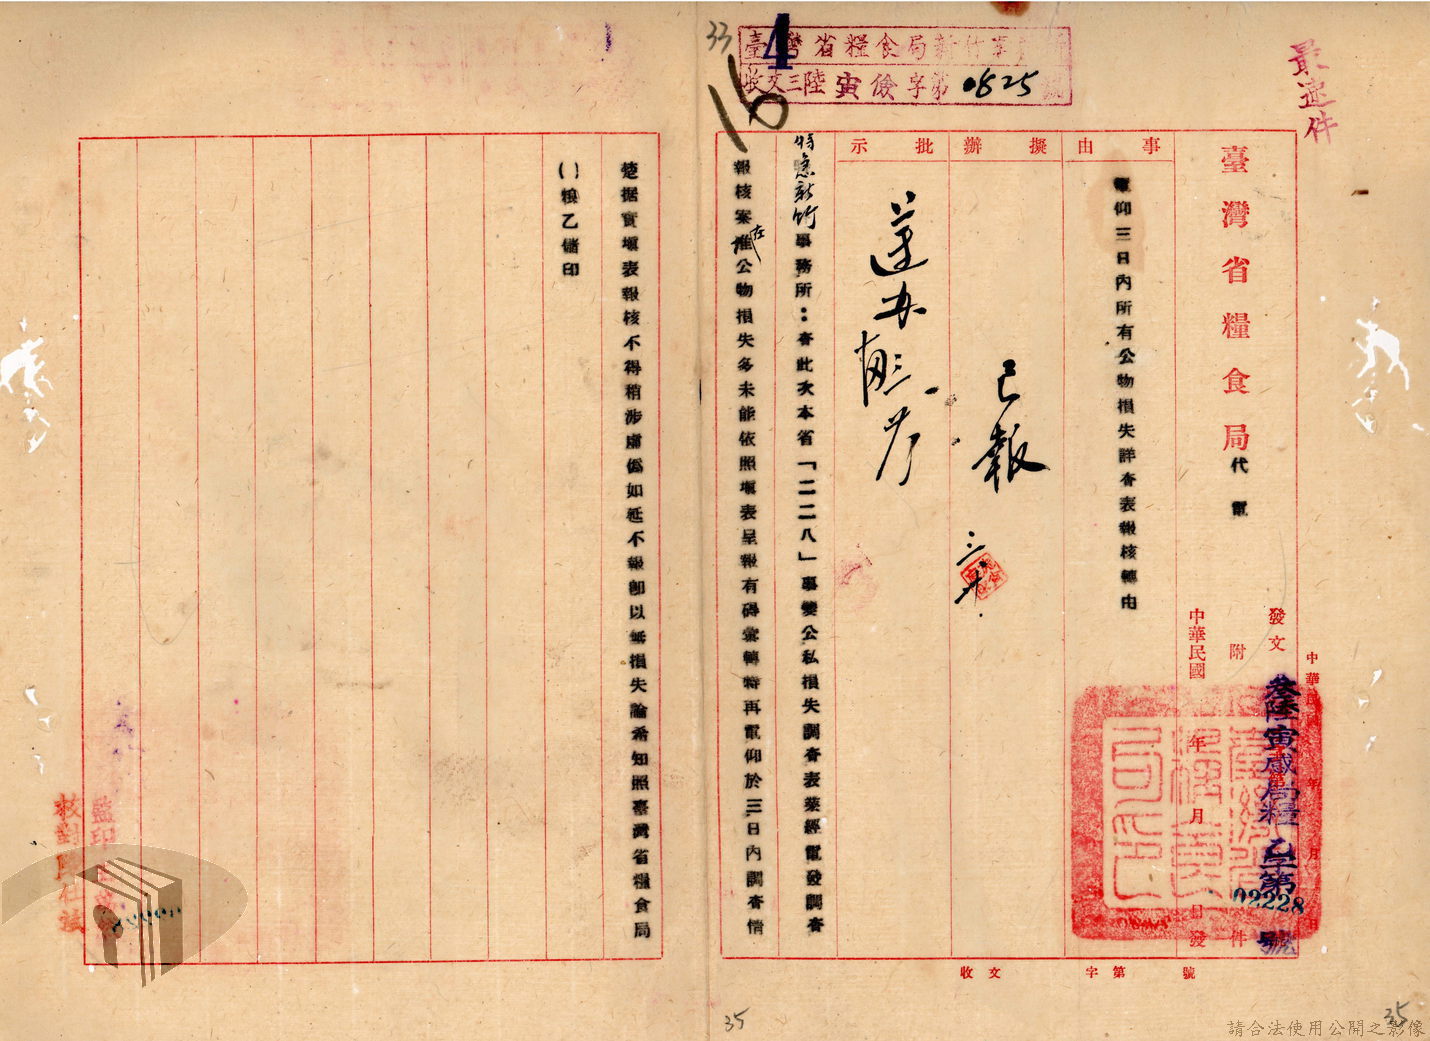 最速件
臺灣省糧食局新竹事
收文三陸寅儉字第0825號
33
4
16
臺灣省糧食局代電
發文
叁陸寅感局糧乙字第02228號
附 件
中華民國 年 月 日發
事由
電仰三日內所有公物損失詳查表報核轉由
擬辦
已報
批示
遵办
特急新竹事務所：查此次本省「二二八」事變公私損失調查表業經電發調查
報核案在公物損失多未能依照填表呈報有碍彙轉特再電仰於三日內調查情
楚据實填表報核不得稍涉虛偽如延不報卽以無損失論希知照臺灣省糧食局
()糧乙儲印
收文 字第 號
監印
校對
35
35
請合法使用公開之影像